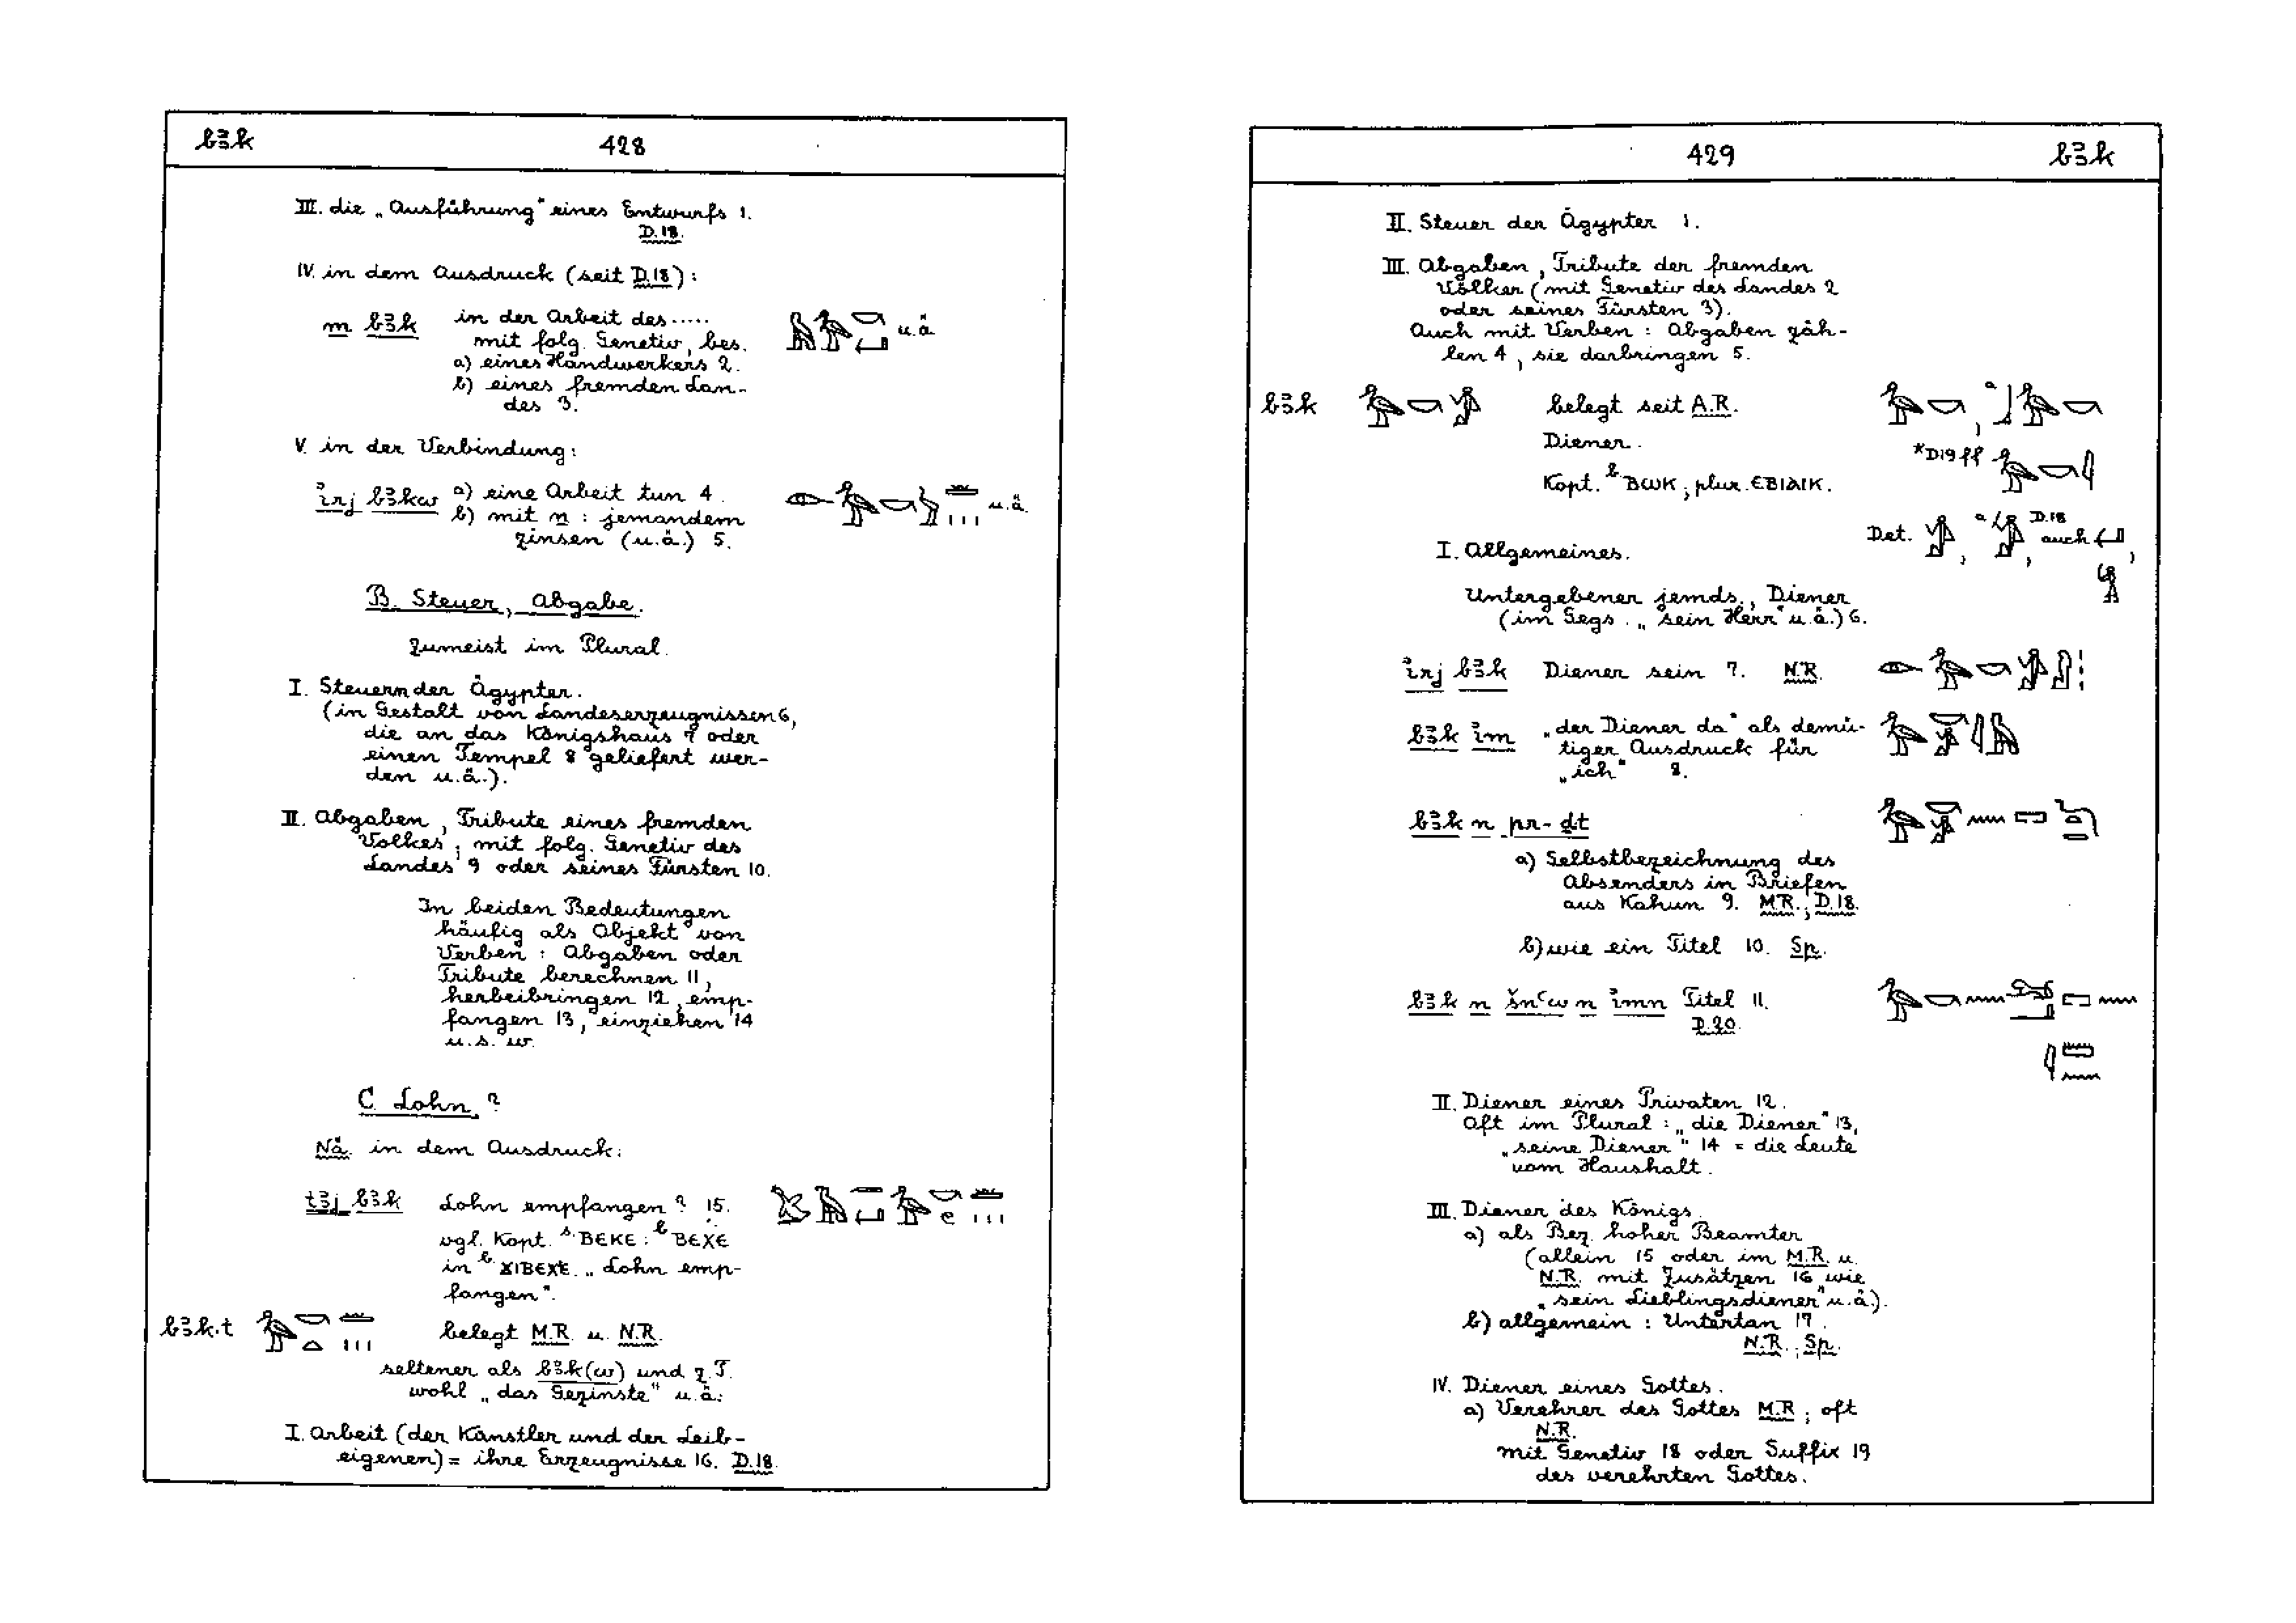 bꜣk 428
III. die „Ausführung" eines Entwurfs 1.
D.18.
IV. in dem Ausdruck (seit D.18):
m bꜣk in der Arbeit des.....
u.ä.
mit folg. Genetiv, bes.
a) eines Handwerkers 2.
b) eines fremden Lan-
des 3.
V. in der Verbindung:
ỉrj bꜣkw a) eine Arbeit tun 4.
u.ä.
b) mit n : jemandem
zinsen (u.ä.) 5.
B. Steuer, Abgabe.
zumeist im Plural.
I. Steuern der Ägypter.
(in Gestalt von Landeserzeugnissen 6,
die an das Königshaus 7 oder
einen Tempel 8 geliefert wer-
den u.ä.).
II. Abgaben, Tribute eines fremden
Volkes, mit folg. Genetiv des
Landes 9 oder seines Fürsten 10.
In beiden Bedeutungen
häufig als Objekt von
Verben : Abgaben oder
Tribute berechnen 11,
herbeibringen 12, emp-
fangen 13, einziehen 14
u.s.w.
C. Lohn ?
Nä. in dem Ausdruck:
tꜣj bꜣk Lohn empfangen ? 15.
vgl. Kopt. s. ⲂⲈⲔⲈ : b. ⲂⲈⲬⲈ
in b. ϪⲒⲂⲈⲬⲈ „Lohn emp-
fangen".
bꜣk.t belegt M.R. u. N.R.
seltener als bꜣk(w) und z.T.
wohl „das Gezinste" u.ä:
I. Arbeit (der Künstler und der Leib-
eigenen) = ihre Erzeugnisse 16. D.18.
429 bꜣk
II. Steuer der Ägypter 1.
III. Abgaben, Tribute der fremden
Völker (mit Genetiv des Landes 2
oder seines Fürsten 3).
Auch mit Verben : Abgaben zäh-
len 4, sie darbringen 5.
bꜣk belegt seit A.R.
Diener.
*D19 ff
Kopt. b. ⲂⲰⲔ; plur. ⲈⲂⲒⲀⲒⲔ.
Det. , a , D.18 auch ,
I. Allgemeines.
Untergebener jemds., Diener
(im Gegs. „sein Herr" u.ä.) 6.
ỉrj bꜣk Diener sein 7. N.R.
bꜣk ỉm „der Diener da" als demü-
tiger Ausdruck für
„ich" 8.
bꜣk n pr-ḏt
a) Selbstbezeichnung des
Absenders in Briefen
aus Kahun 9. M.R.; D.18.
b) wie ein Titel 10. Sp.
bꜣk n šnꜥw n ỉmn Titel 11.
D.20.
II. Diener eines Privaten 12.
Oft im Plural : „die Diener" 13,
„seine Diener" 14 = die Leute
vom Haushalt.
III. Diener des Königs.
a) als Bez. hoher Beamter
(allein 15 oder im M.R. u.
N.R. mit Zusätzen 16 wie
„sein Lieblingsdiener" u.ä.).
b) allgemein : Untertan 17.
N.R.; Sp.
IV. Diener eines Gottes.
a) Verehrer des Gottes M.R.; oft
N.R.
mit Genetiv 18 oder Suffix 19
des verehrten Gottes.